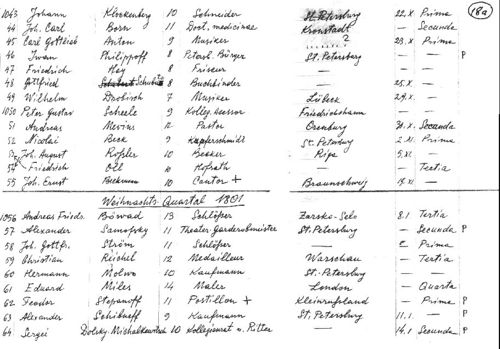 1043 Johann Klockenberg 10 Schneider St. Petersburg 22.X. Prima 18a
44 Joh. Carl Born 11 Doct. medicinae Kronstadt — —
45 Carl Gottlieb Anton 9 Musiker ? 23.X. Prima
46 Iwan Philippoff 8 Petersb. Bürger St. Petersburg — — P
47 Friedrich Hay 8 Friseur — — —
48 Gottfried Schubert 8 Buchbinder — 25.X. —
49 Wilhelm 7 Musiker Lübeck 29.X. —
1050 Peter Gustav Scheele 9 Kolleg. Assessor Friedrichsham
51 Andreas Mevius 12 Pastor Orenburg 30.X. Secunda
52 Nicolai Beck 9 Kupferschmidt St. Petersburg 2.XI. Prima
53 Joh. August Roßler 10 Becker Riga 5.XI. —
54 Friedrich Ott 10 Hofrath — — Tertia
55 Joh. Ernst Beckmann 10 Cantor + Braunschweig —
Weihnachts-Quartal 1801
1056 Andreas Friedr. Börwad 13 Schlößer Zarsko-Selo 8.1 Tertia
57 Alexander Samofsky 11 Theater Garderobmeister St. Petersburg — Secunda P
58 Joh. Gottfr. Ström 11 Schlößer — Prima
59 Christian Reichel 12 Medailleur Warschau — Tertia
60 Hermann Molwo 10 Kaufmann St. Petersburg — —
61 Eduard Miles 14 Maler London — Quarta
62 Feodor Stepanoff 11 Postillon + Kleinrußland — Prima P
63 Alexander Schikaeff 9 Kaufmann St. Petersburg 11.1. — P
64 Sergei Dolsky-Michalkewitsch 10 Kollegienrat u. Ritter — 14.1 Secunda P